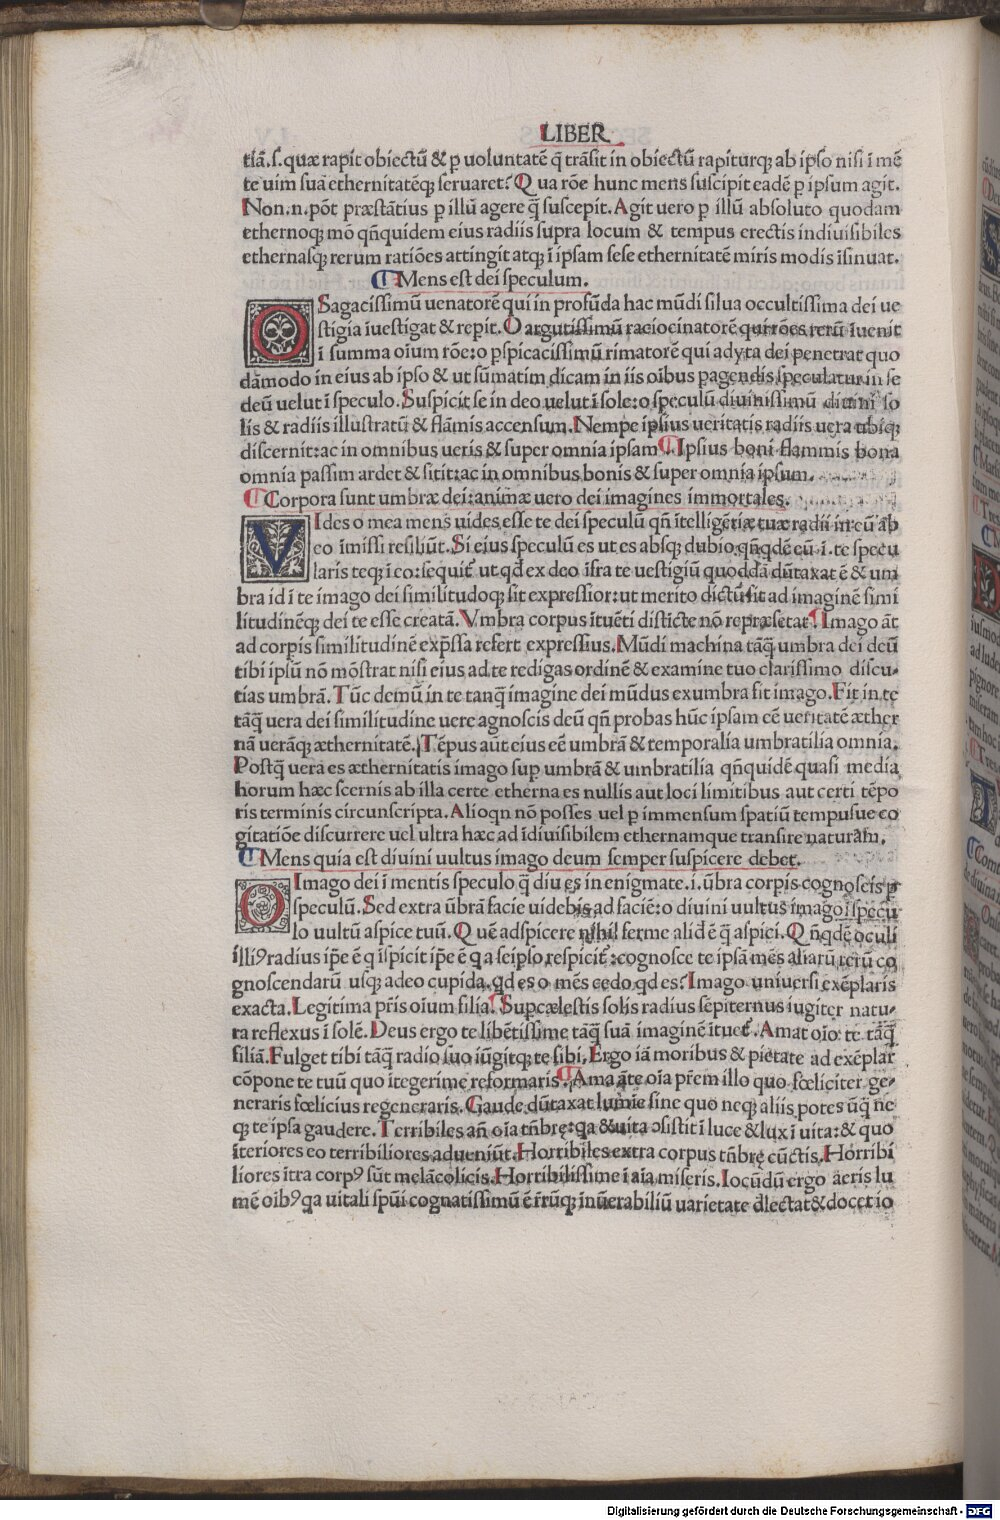 LIBER
tiā.ſ.quæ rapit obiectū & p uoluntatē q̄ trāſit in obiectū rapiturq; ab ipſo niſi ī mē
te uim ſuā ethernitatēq; ſeruaret? Qua rōe hunc mens ſuſcipit eadē p ipſum agit.
Non.n.pōt præſtātius p illū agere q̄ ſuſcepit. Agit uero p illū abſoluto quodam
ethernoq; mō qn̄quidem eius radiis ſupra locum & tempus erectis indiuiſibiles
ethernaſq; rerum ratiōes attingit atq; ī ipſam ſeſe ethernitatē miris modis īſinuat.
¶ Mens est dei ſpeculum.
O Sagaciſſimū uenatorē qui in profūda hac mūdi ſilua occultiſſima dei ue
ſtigia īueſtigat & repit. O argutiſſimū raciocinatorē qui rōes rerū īuenit
ī ſumma oīum rōe:o pſpicaciſſimū rimatorē qui adyta dei penetrat quo
dāmodo in eius ab ipſo & ut ſūmatim dicam in iis oībus pagendis ſpeculatur in ſe
deū uelut ī ſpeculo. Suſpicit ſe in deo uelut ī ſole:o ſpeculū diuiniſſimū diuini ſo
lis & radiis illuſtratū & flāmis accenſum. Nempe ipſius ueritatis radiis uera ubiq;
diſcernit:ac in omnibus ueris & ſuper omnia ipſam ¶ Ipſius boni flammis bona
omnia paſſim ardet & ſitit:ac in omnibus bonis & ſuper omnia ipſum.
¶ Corpora ſunt umbræ dei:animæ uero dei imagines immortales.
V Ides o mea mens uides eſſe te dei ſpeculū qn̄ ītelligētiæ tuæ radii in eū ab
eo īmiſſi reſiliūt. Si eius ſpeculū es ut es abſq; dubio qn̄qdē eū.ī.te ſpecu
laris teq; ī eo:ſequit̄ ut qd̄ ex deo īfra te ueſtigiū quoddā dūtaxat ē & um
bra id ī te imago dei ſimilitudoq; ſit expreſſior:ut merito dictū ſit ad imaginē ſimi
litudinēq; dei te eſſe creatā. Vmbra corpus ītuēti diſticte nō repræſetat ¶ Imago āt
ad corpis ſimilitudinē exp̄ſſa refert expreſſius. Mūdi machina tāq̄ umbra dei deū
tibi ipſū nō mōſtrat niſi eius ad te redigas ordinē & examine tuo clariſſimo diſcu-
tias umbrā. Tūc demū in te tanq̄ imagine dei mūdus ex umbra fit imago. Fit in te
tāq̄ uera dei ſimilitudine uere agnoſcis deū qn̄ probas hūc ipſam eē ueritatē æther
nā uerāq; æthernitatē. Tēpus aūt eius eē umbrā & temporalia umbratilia omnia.
Poſtq̄ uera es æthernitatis imago ſup umbrā & umbratilia qn̄quidē quaſi media
horum hæc ſcernis ab illa certe etherna es nullis aut loci limitibus aut certi tēpo
ris terminis circunſcripta. Alioqn nō poſſes uel p immenſum ſpatiū tempuſue co
gitatiōe diſcurrere uel ultra hæc ad īdiuiſibilem ethernamque tranſire naturam.
¶ Mens quia eſt diuini uultus imago deum ſemper ſuſpicere debet.
O Imago dei ī mentis ſpeculo q̄ diu es in enigmate.i.ūbra corpis cognoſcis p
ſpeculū. Sed extra ūbrā facie uidebis ad faciē:o diuini uultus imago īſpecu
lo uultū aſpice tuū. Quē adſpicere nihil ferme alid ē q̄ aſpici. Qn̄qdē oculi
illiꝰ radius ip̄e ē q īſpicit ip̄e ē q a ſeipſo reſpicit̄:cognoſce te ipſā mēs aliarū rerū co
gnoſcendarū uſq; adeo cupida.qd es o mēs cedo qd es? Imago uniuerſi exēplaris
exacta. Legitima pr̄is oīum filia. ¶ Supcæleſtis ſolis radius ſēpiternus iugiter natu-
ra reflexus ī ſolē. Deus ergo te libētiſſime tāq̄ ſuā imaginē ītuet̄. Amat oīo te tāq̄
filiā. Fulget tibi tāq̄ radio ſuo iūgitq; te ſibi. Ergo iā moribus & pietate ad exēplar
cōpone te tuū quo ītegerime reformaris ¶ Ama āte oīa pr̄em illo quo fœliciter ge-
neraris fœlicius regeneraris. Gaude dūtaxat lumīe ſine quo neq; aliis potes ūq̄ ne
q; te ipſa gaudere. Terribiles an̄ oīa tn̄bre:qa & uita ↄſiſtit ī luce & lux ī uita:& quo
īteriores eo terribiliores adueniūt. Horribiles extra corpus tn̄bre cūctis. Horribi
liores ītra corpꝰ ſūt melācolicis. Horribiliſſime ī aīa miſeris. Iocūdū ergo aeris lu
mē oībꝰ qa uitali ſpūi cognatiſſimū ē r̄rūq; īnūerabiliū uarietate dlectat & docet io
Digitalisierung gefördert durch die Deutsche Forschungsgemeinschaft - DFG